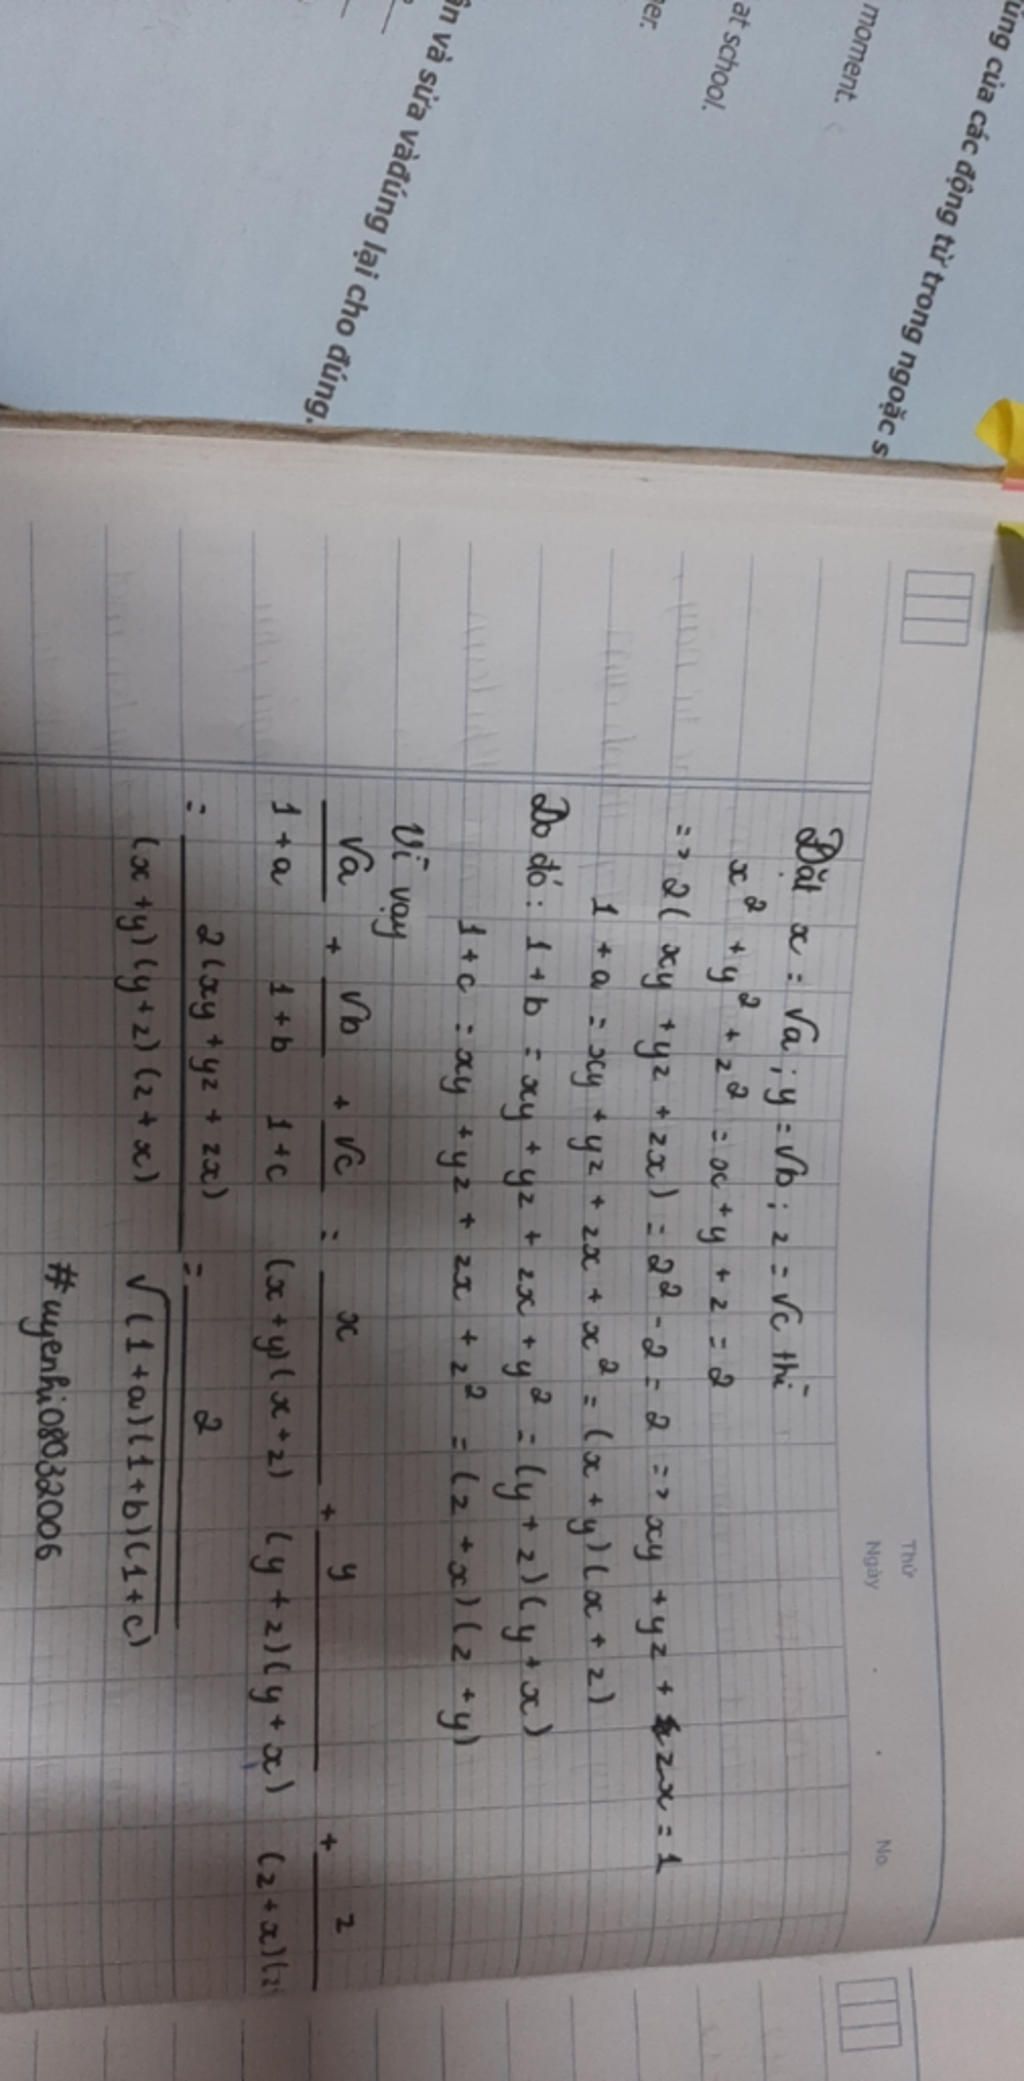 ùng của các động từ trong ngoặc s
moment.
at school.
her.
ân và sửa vàđúng lại cho đúng.
Thứ
Ngày
No.
Đặt x = √a ; y = √b ; z = √c thì
x² + y² + z² = x + y + z = 2
=> 2( xy + yz + zx) = 2² - 2 = 2 => xy + yz + zx = 1
1 + a = xy + yz + zx + x² = (x + y)(x + z)
Do đó : 1 + b = xy + yz + zx + y² = (y + z)(y + x)
1 + c = xy + yz + zx + z² = (z + x)(z + y)
Vì vậy
√a/(1 + a) + √b/(1 + b) + √c/(1 + c) = x/((x + y)(x + z)) + y/((y + z)(y + x)) + z/((z + x)(z
= 2(xy + yz + zx)/((x + y)(y + z)(z + x)) = 2/√((1 + a)(1 + b)(1 + c))
#uyenhi08032006